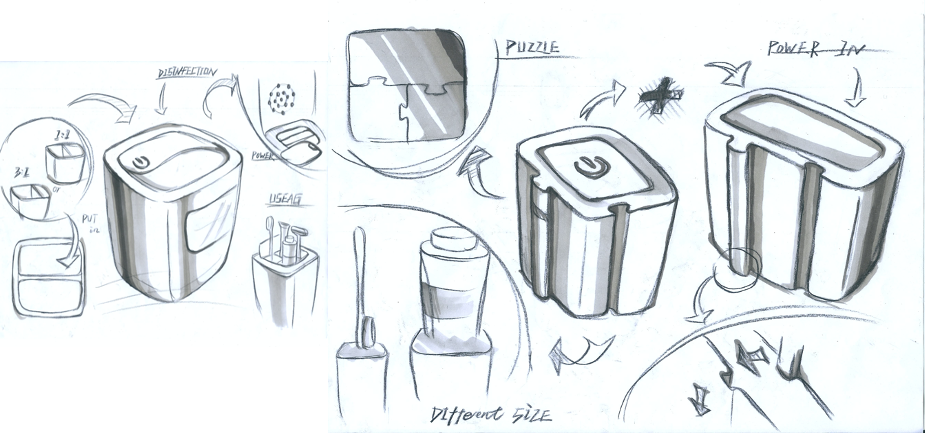 DISINFECTION
1:1
3:1
or
PUT
in
POWER
USEAG
PUZZLE
POWER IN
DIfferent SIZE